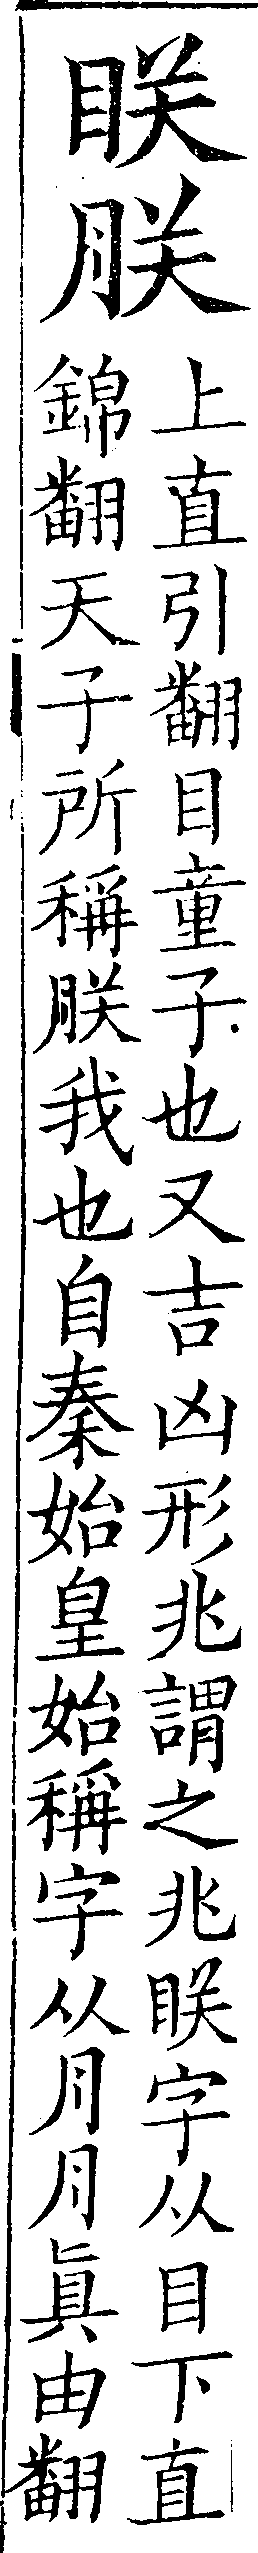 眹朕
上直引翻目童子也又吉凶形兆謂之兆眹字从目下直
錦翻天子所稱朕我也自秦始皇始稱字从月月眞由翻